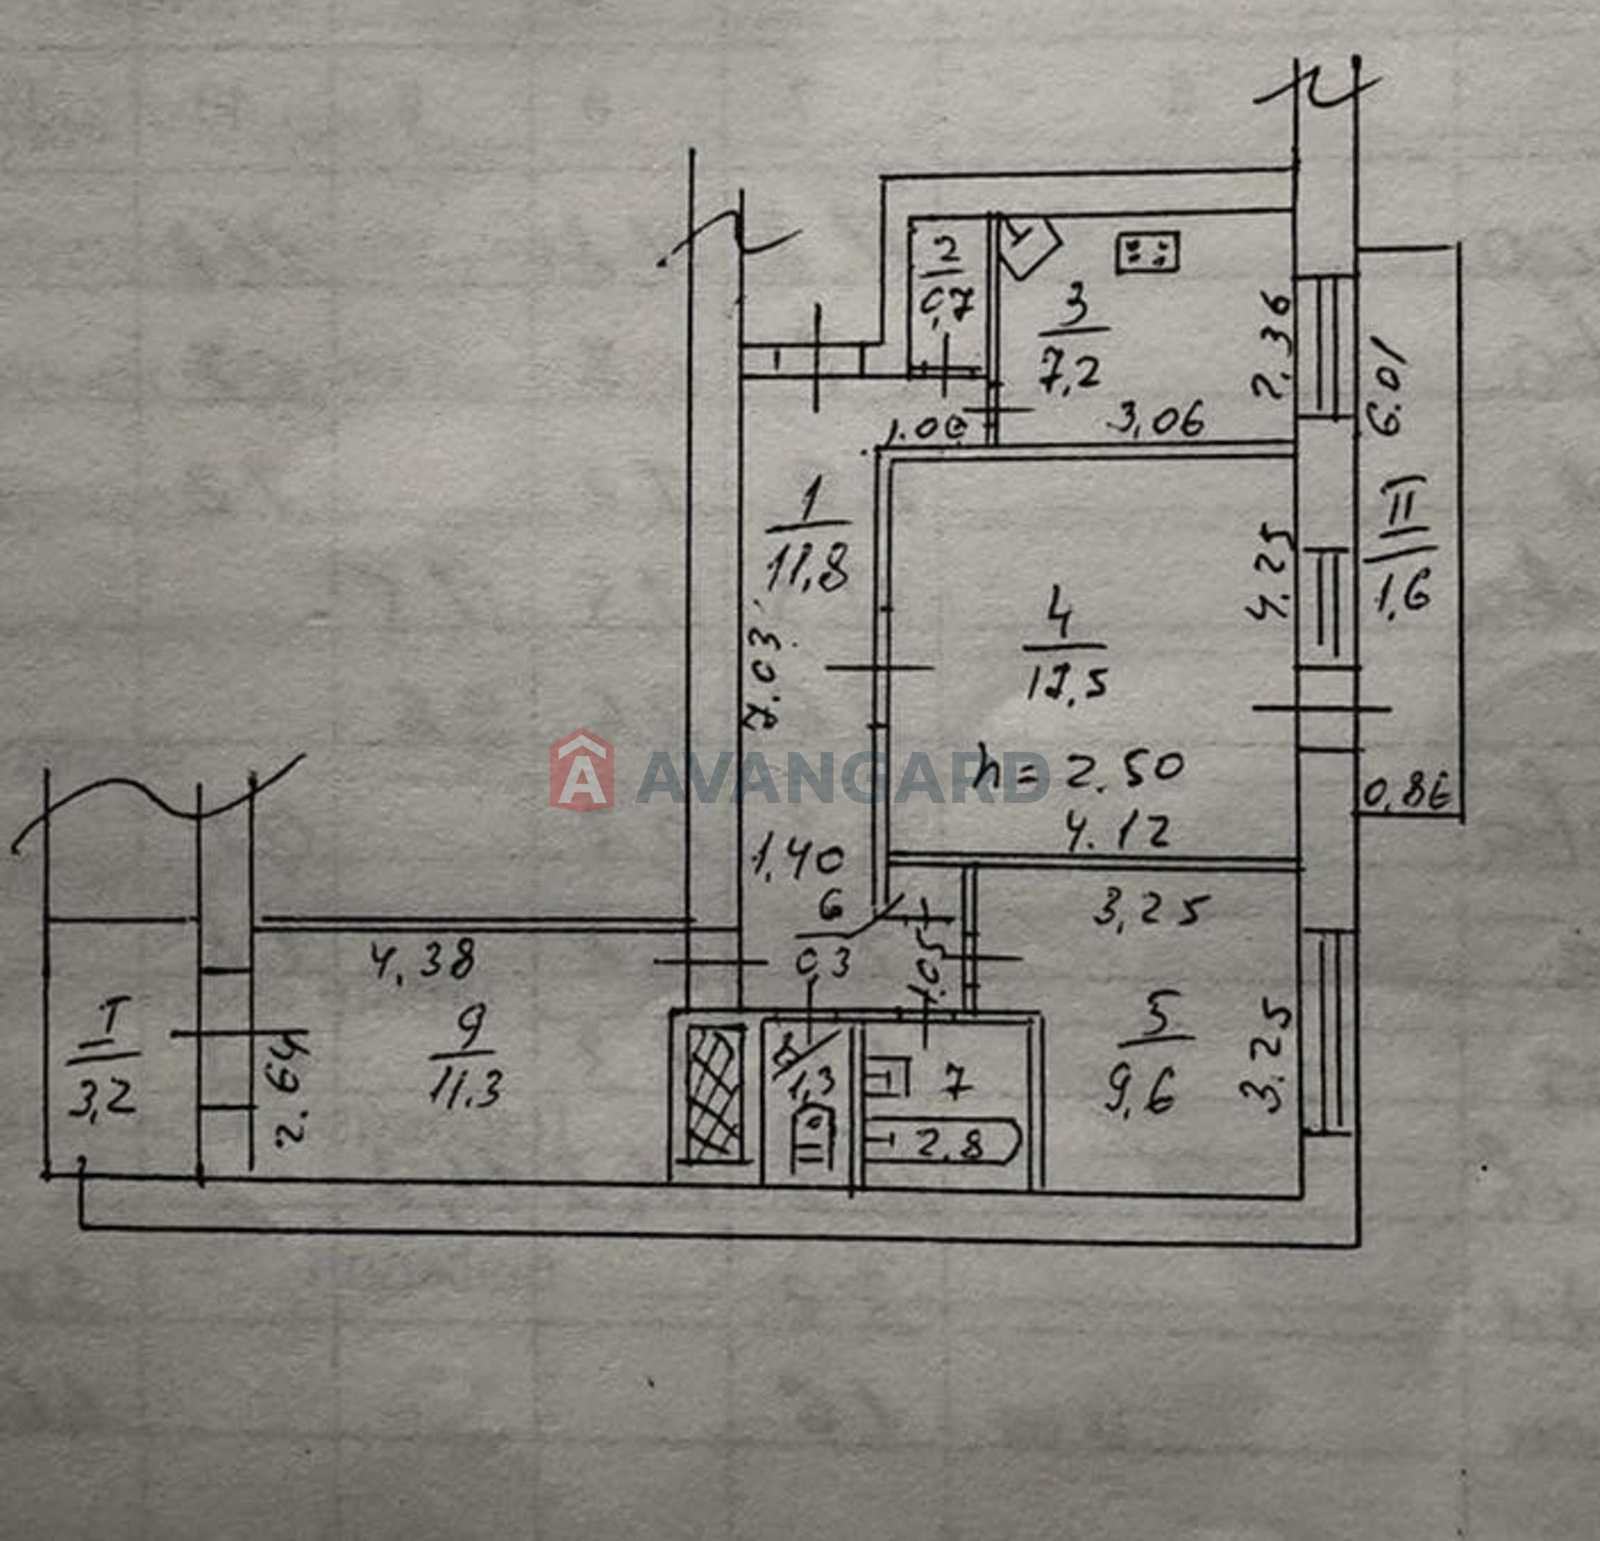 2
0,7
3
7,2
2.36
3,06
1.00
6.01
1
11,8
7.03
4.25
II
1,6
4
17,5
h = 2.50
4.12
0,86
1,40
6
0,3
1.05
3,25
5
9,6
3.25
4,38
9
11.3
2.64
I
3,2
8
1,3
7
2.8
AVANGARD